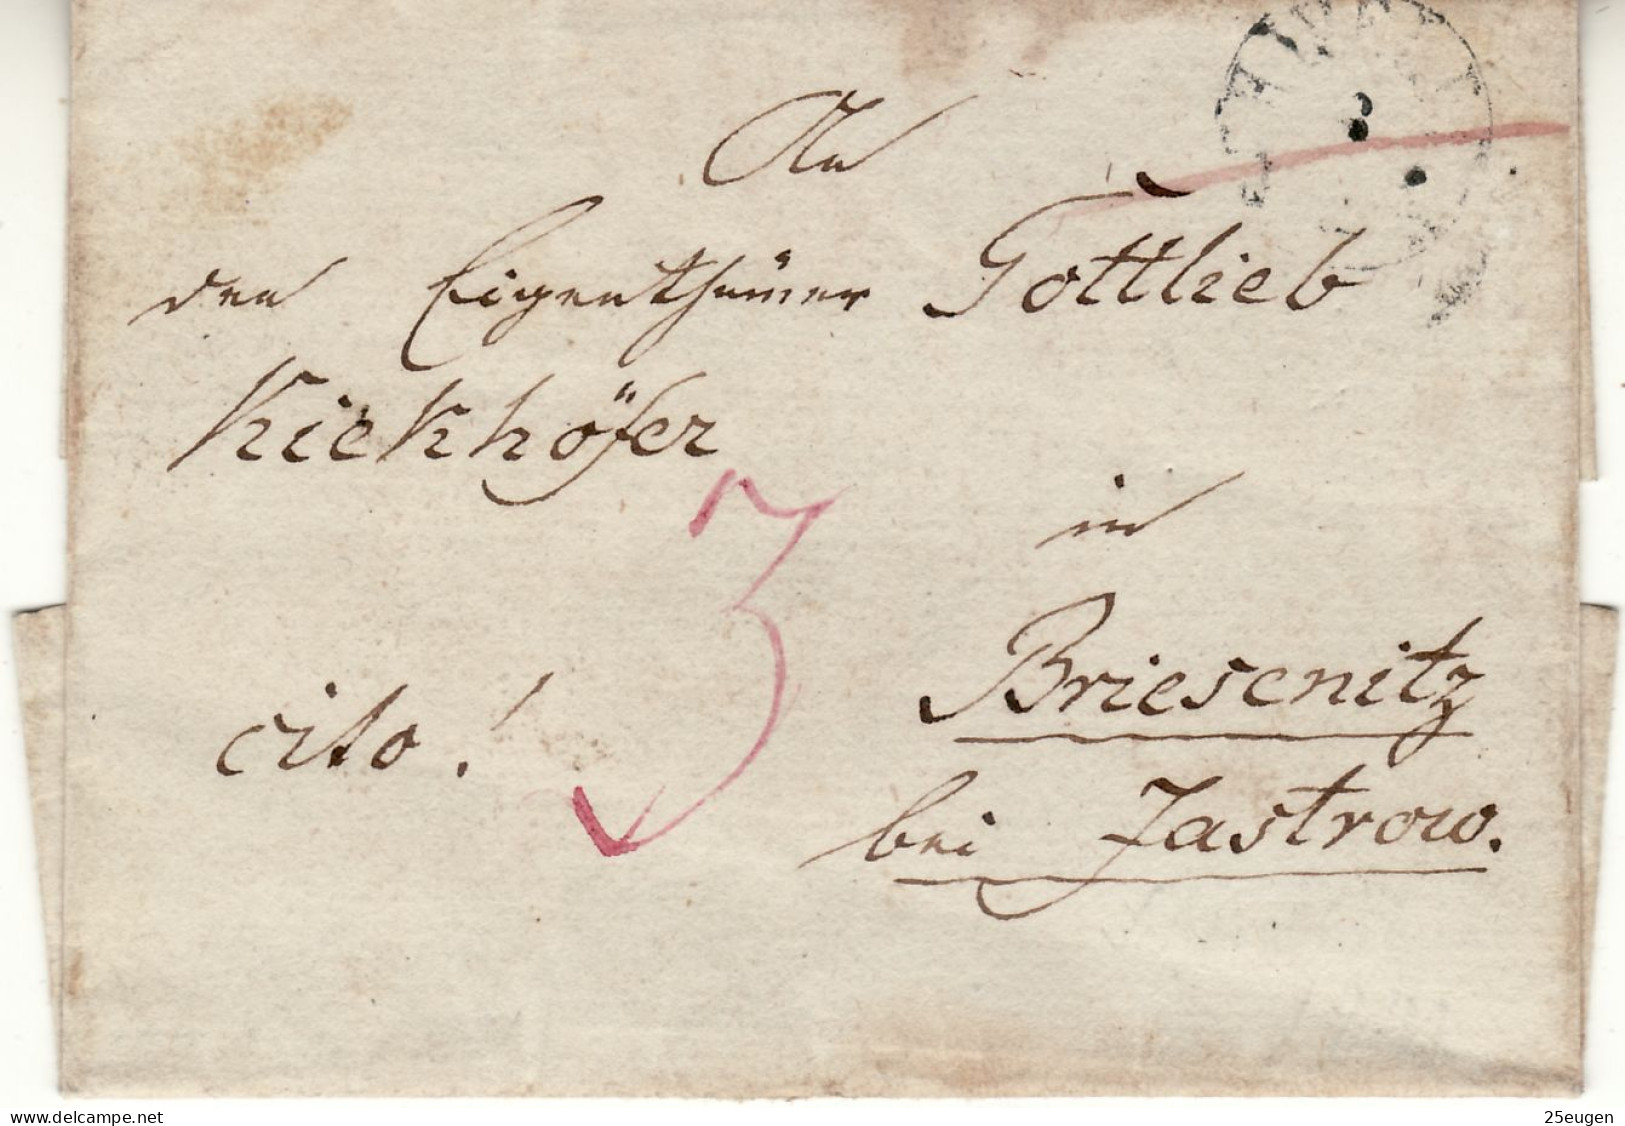 An
den Eigenthümer Gottlieb
Kiekhöfer
in
3
Briesenitz
cito!
bei Jastrow.
www.delcampe.net
25eugen